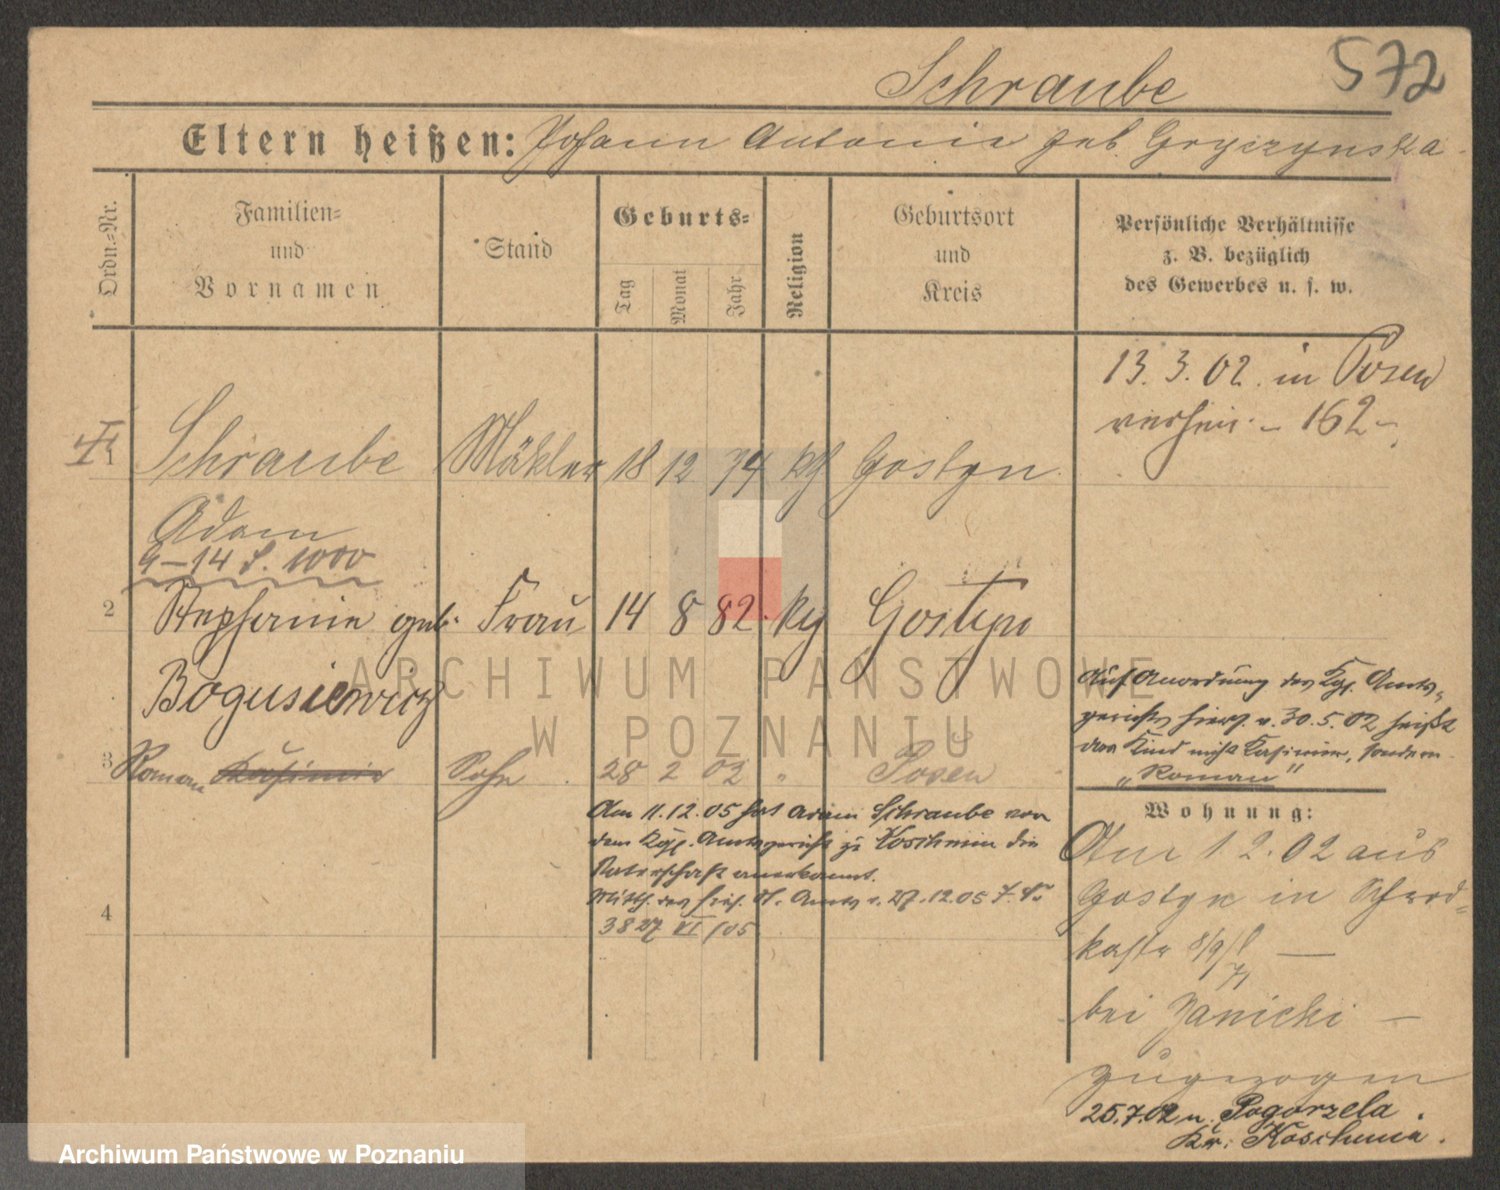 Schraube 572
Eltern heißen: Johann Antonie geb. Gryczynska
Ordn.-Nr.
Familien-
und
Vornamen
Stand
Geburts-
Tag
Monat
Jahr
Religion
Geburtsort
und
Kreis
Persönliche Verhältnisse
z. B. bezüglich
des Gewerbes u. s. w.
13. 3. 02. in Posen
verheir. – 162 –
1 Schraube Mäkler 18 12 74 Kth Gostyn
Adam
9–14 S. 1000
2 Stephanie geb. Frau 14 8 82. Kth Gostyn
Bogusiewicz
3 Roman Kasimir Sohn 28 2 02 " Posen
Auf Anordnung des Kgl. Amts-
gerichts hiers. v. 30.5.02 heißt
das Kind nicht Kasimir, sondern
"Roman"
Am 11.12.05 hat Adam Schraube vor
dem Kgl. Amtsgericht zu Koschmin die
Vaterschaft anerkannt.
Mitth. des hies. St. Amts v. 27.12.05 J. No
3827 VI/05
4
Wohnung:
Am 1.2.02 aus
Gostyn in Schrod-
kastr 8/9
bei Janicki –
zugezogen
25.7.02 n. Pogorzela.
Kr. Koschmin.
ARCHIWUM PAŃSTWOWE
W POZNANIU
Archiwum Państwowe w Poznaniu